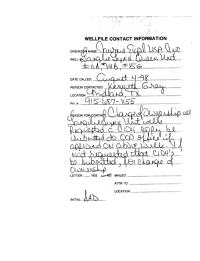 WELLFILE CONTACT INFORMATION
OPERATOR NAME: Saurus Expl USA Inc
WELL Queen Unit
DATE CALLED: August 4-98
PERSON CONTACTED: Kenneth Gray
LOCATION: Midland, TX
PH. #: 915-687-1155
REASON FOR CONTACT: Change of Ownership all
Unit wells
Requested a C104 be
submitted to OCD office if
approved on above wells. If
not requested that C104's
be submitted, for change of
ownership
LETTER: YES NO MAILED:
ATTN TO:
LOCATION:
INITIAL: